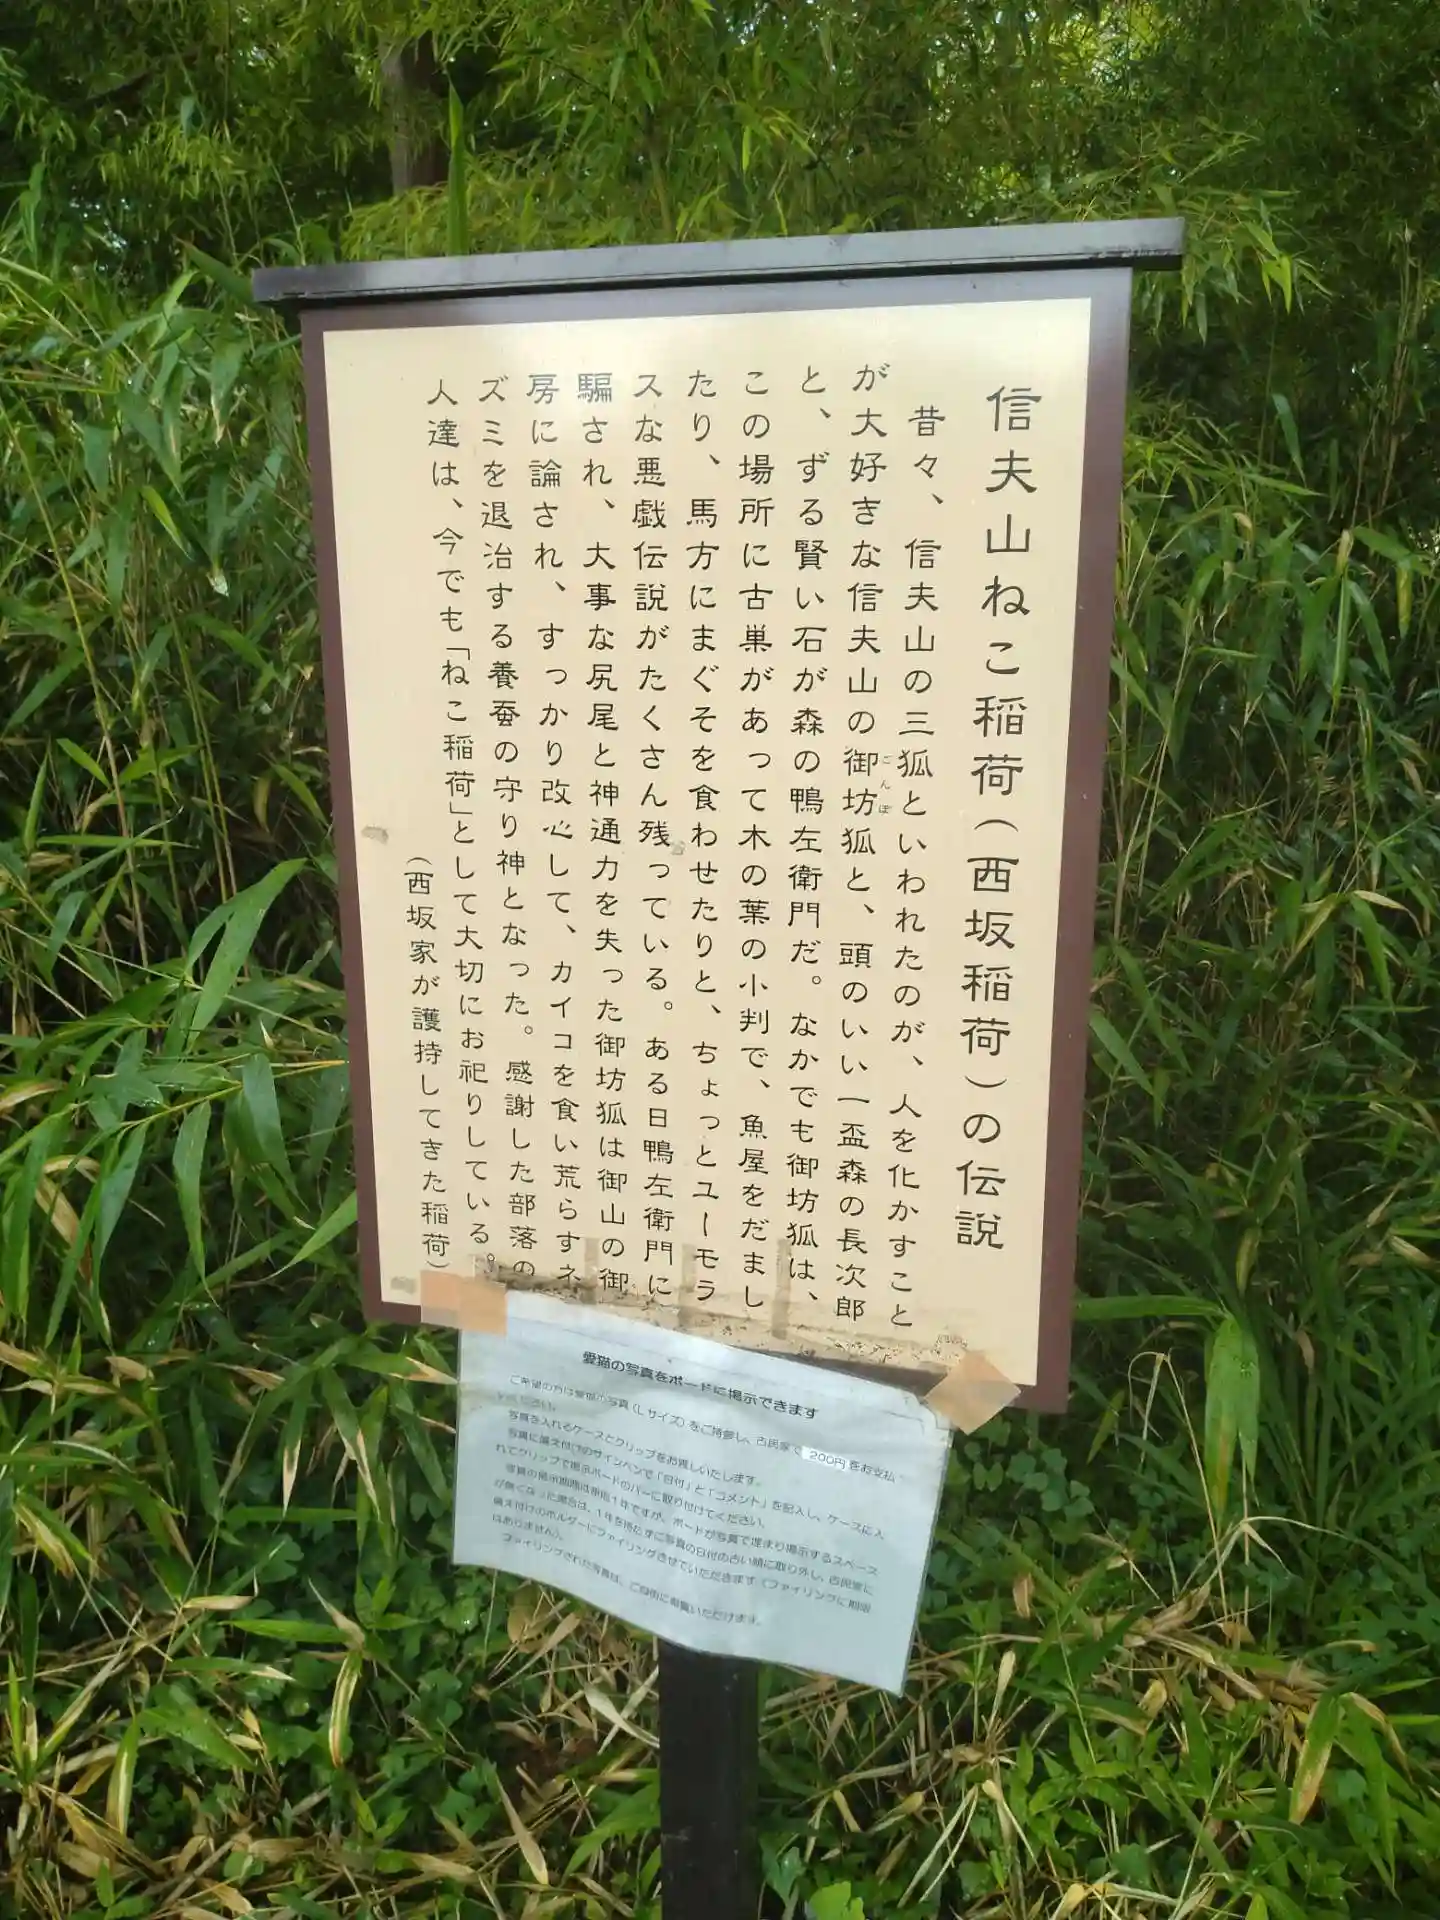 信夫山ねこ稲荷(西坂稲荷)の伝説
昔々、信夫山の三狐といわれたのが、人を化かすこと
が大好きな信夫山の御坊狐と、頭のいい一盃森の長次郎
ごんぼ
と、ずる賢い石が森の鴨左衛門だ。なかでも御坊狐は、
この場所に古巣があって木の葉の小判で、魚屋をだまし
たり、馬方にまぐそを食わせたりと、ちょっとユーモラ
スな悪戯伝説がたくさん残っている。ある日鴨左衛門に
騙され、大事な尻尾と神通力を失った御坊狐は御山の御
房に論され、すっかり改心して、カイコを食い荒らすネ
ズミを退治する養蚕の守り神となった。感謝した部落の
人達は、今でも「ねこ稲荷」として大切にお祀りしている。
(西坂家が護持してきた稲荷)
愛猫の写真をボードに掲示できます
ご希望の方は愛猫の写真(Lサイズ)をご持参し、古民家で200円をお支払
いください。
写真を入れるケースとクリップをお渡しいたします。
写真に備え付けのサインペンで「日付」と「コメント」を記入し、ケースに入
れてクリップで掲示ボードのバーに取り付けてください。
写真の掲示期間は原則1年ですが、ボードが写真で埋まり掲示するスペース
が無くなった場合は、1年を待たずに写真の日付の古い順に取り外し、古民家に
備え付けのホルダーにファイリングさせていただきます(ファイリングに期限
はありません)。
ファイリングされた写真は、ご自由に閲覧いただけます。